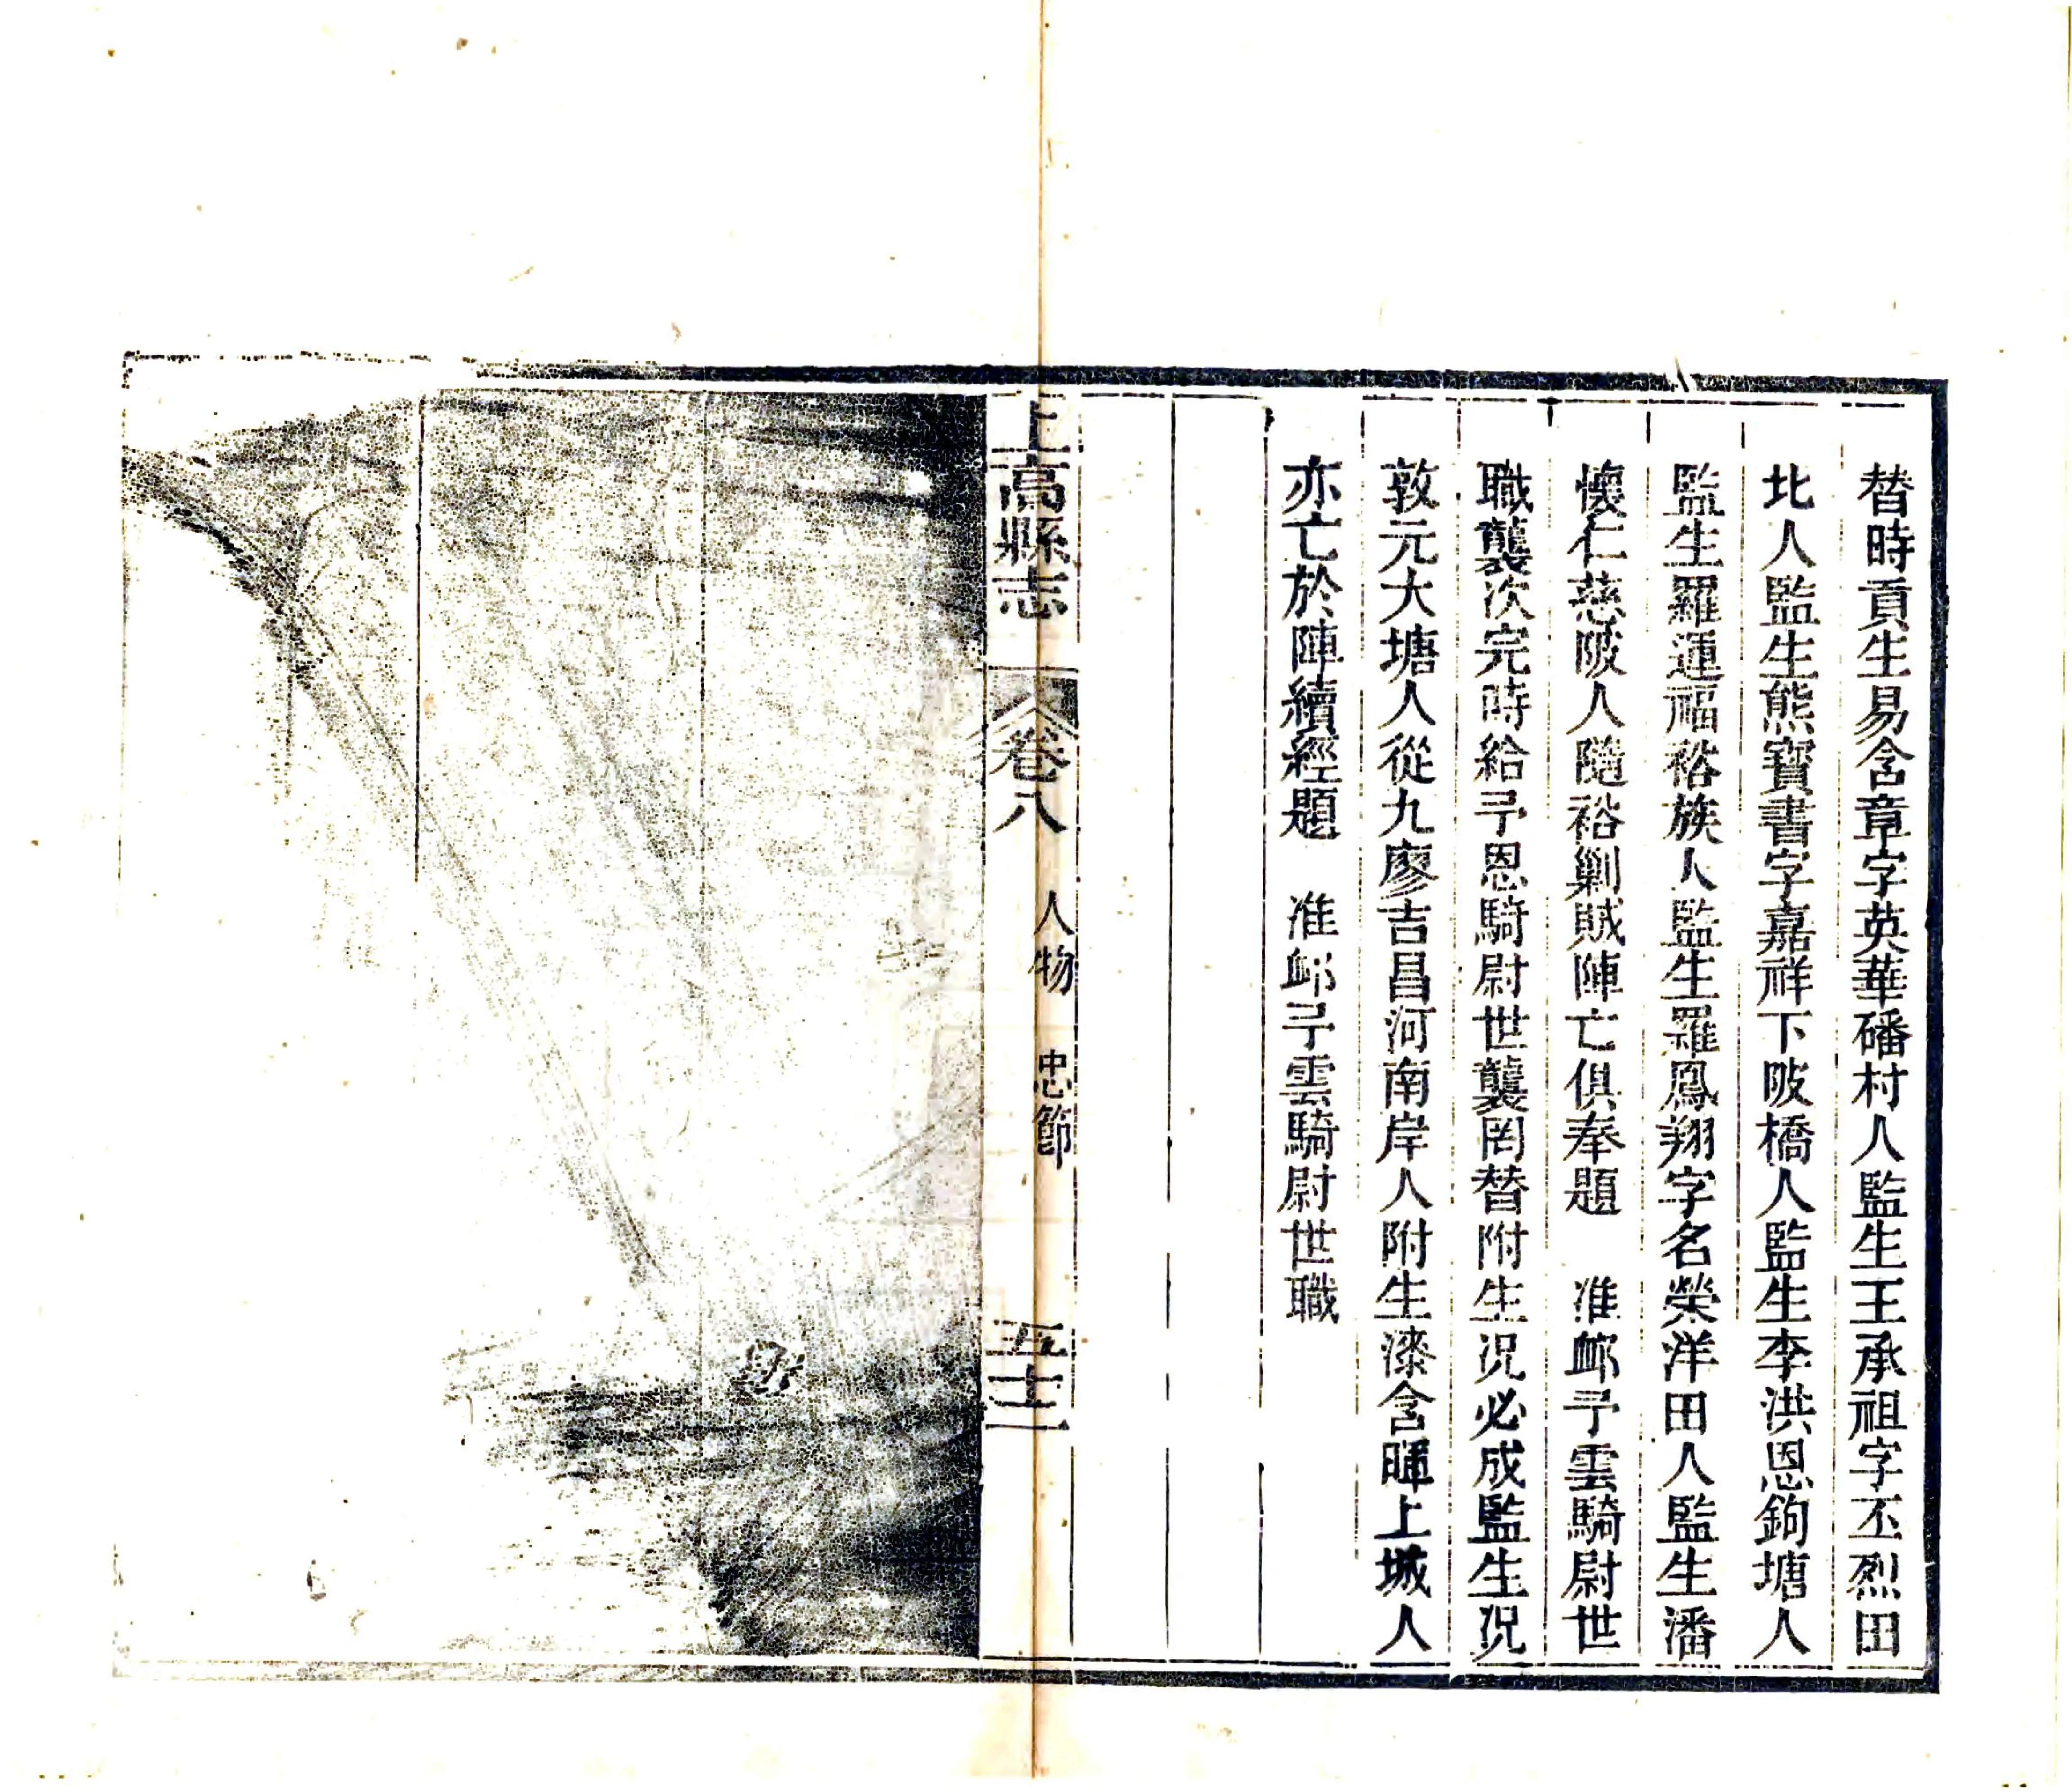 替時貢生易含章字英華磻村人監生王承祖字丕烈田
北人監生熊寶書字嘉祥下陂橋人監生李洪恩鉤塘人
監生羅運福裕族人監生羅鳳翔字名榮洋田人監生潘
懷仁慈陂人隨裕剿賊陣亡俱奉題　准卹予雲騎尉世
職襲次完時給予恩騎尉世襲罔替附生況必成監生況
敦元大塘人從九廖吉昌河南岸人附生漆含暉上城人
亦亡於陣續經題　准卹予雲騎尉世職
上高縣志　卷八　人物　忠節　五十二